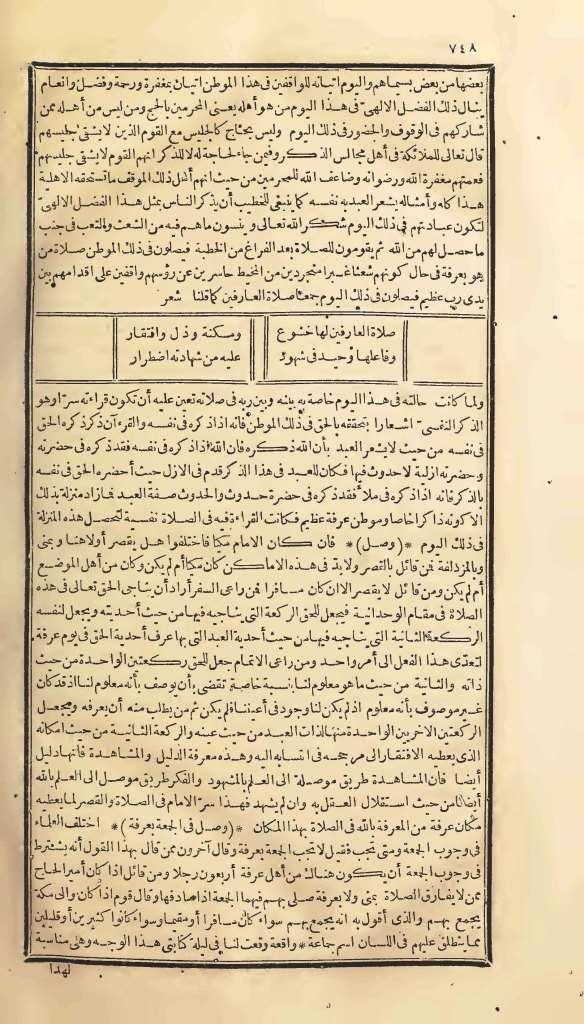 ٧٤٨
بعضها من بعض بسيماهم واليوم اتيانه للواقفين فى هذا الموطن اتيان بمغفرة ورحمة وفضل وانعام
ينال ذلك الفضل الالهىّ فى هذا اليوم من هو أهله يعنى المحرمين بالحج ومن ليس من أهله ممن
شاركهم فى الوقوف والحضور فى ذلك اليوم وليس بحاج كالجليس مع القوم الذين لا يشقى جليسهم
قال تعالى للملائكة فى أهل مجالس الذكر وفيمن جاء لحاجة له لا للذكر انهم القوم لا يشقى جليسهم
فعمتهم مغفرة الله ورضوانه وضاعف الله للمجرمين من حيث انهم أهل ذلك الموقف ما تستحقه الاهلية
هذا كله وأمثاله يشعر العبد به نفسه كما ينبغى للخطيب أن يذكر الناس بمثل هذا الفضل الالهىّ
لتكون عبادتهم فى ذلك اليوم شكر الله تعالى وينسون ما هم فيه من الشعث والتعب فى جنب
ما حصل لهم من الله ثم يقومون للصلاة بعد الفراغ من الخطبة فيصلون فى ذلك الموطن صلاة من
هو بعرفة فى حال كونهم شعثا غبرا متجردين من المخيط حاسرين عن رؤسهم واقفين على اقدامهم بين
يدى رب عظيم فيصلون فى ذلك اليوم جمعا صلاة العارفين كما قلنا شعر
صلاة العارفين لها خشوع ومسكنة وذل وافتقار
وفاعلها وحيد فى شهود عليه من شهادته اضطرار
ولما كانت حالته فى هذا اليوم خاصة به بينه وبين ربه فى صلاته تعين عليه أن تكون قراءته سرّا وهو
الذكر النفسىّ اشعارا بتحققه بالحق فى ذلك الموطن فانه اذا ذكره فى نفسه والقرءآن ذكر ذكره الحق
فى نفسه من حيث لا يشعر العبد بأن الله ذكره فان الله اذا ذكره فى نفسه فقد ذكره فى حضرته
وحضرته ازلية لا حدوث فيها فكان للعبد فى هذا الذكر قدم فى الازل حيث أحضره الحق فى نفسه
بالذكر فانه اذا ذكره فى ملأ فقد ذكره فى حضرة حدوث والحدوث صفة العبد فما زاد منزلة بذلك
الا كونه ذاكرا خاصا وموطن عرفة عظيم فكانت القراءة فيه فى الصلاة نفسية لتحصل هذه المنزلة
فى ذلك اليوم *(وصل)* فان كان الامام مكيّا فاختلفوا هل يقصر أولا هنا وبمنى
وبالمزدلفة فمن قائل بالقصر ولابدّ فى هذه الاماكن كان مكيا أم لم يكن وكان من أهل الموضع
أم لم يكن ومن قائل لا يقصر الا ان كان مسافرا فمن راعى السفر أراد أن يناجى الحق تعالى فى هذه
الصلاة فى مقام الوحدانية فيجعل للحق الركعة التى يناجيه فيها من حيث أحديته ويجعل لنفسه
الركعة الثانية التى يناجيه فيها من حيث أحدية العبد التى بها عرف أحدية الحق فى يوم عرفة
لتعدّى هذا الفعل الى أمر واحد ومن راعى الاتمام جعل للحق ركعتين الواحدة من حيث
ذاته والثانية من حيث ما هو معلوم لنا بنسبة خاصة تقضى بأن يوصف بأنه معلوم لنا اذ قد كان
غير موصوف بأنه معلوم اذ لم يكن لنا وجود فى أعياننا فلم يكن ثم من يطلب منه أن يعرفه ويجعل
الركعتين الاخريين الواحدة منها لذات العبد من حيث عينه والركعة الثانية من حيث امكانه
الذى يعطيه الافتقار الى مرجحه فى انتسابه اليه وهذه معرفة الدليل والمشاهدة فانها دليل
أيضا فان المشاهدة طريق موصلة الى العلم بالمشهود والفكر طريق موصل الى العلم بالله
أيضا من حيث استقلال العقل به وان لم يشهد فهذا سرّ الامام فى الصلاة والقصر لما يعطيه
مكان عرفة من المعرفة بالله فى الصلاة بهذا المكان *(وصل فى الجمعة بعرفة)* اختلف العلماء
فى وجوب الجمعة ومتى تجب فقيل لا تجب الجمعة بعرفة وقال آخرون ممن قال بهذا القول أنه يشترط
فى وجوب الجمعة أن يكون هنالك من أهل عرفة أربعون رجلا ومن قائل اذا كان أمير الحاج
ممن لا يفارق الصلاة بمنى ولا بعرفة صلى بهم فيهما الجمعة اذا صادفها وقال قوم اذا كان والى مكة
يجمع بهم والذى أقول به انه يجمع بهم سواء كان مسافرا أو مقيما وسواء كانوا كثيرين أو قليلين
مما ينطلق عليهم فى اللسان اسم جماعة * واقعة وقعت لنا فى ليلة كتابتى هذا الوجه وهى مناسبة
لهذا